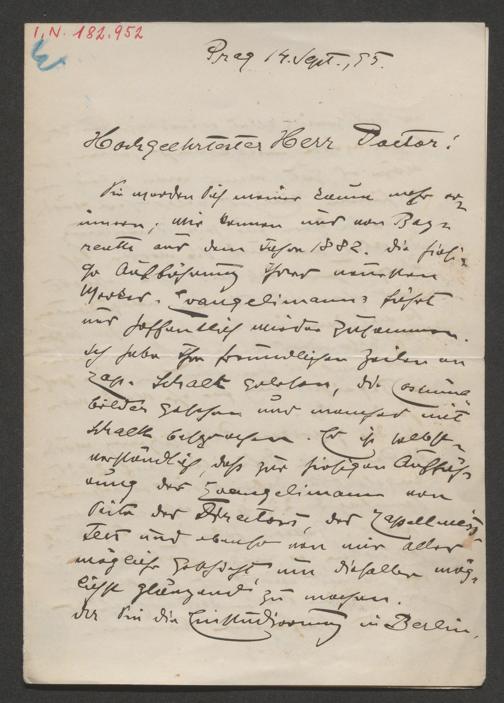 I.N. 182.952
Prag 14. Sept., 95.
Hochgeehrtester Herr Doctor!
Sie werden sich meiner kaum mehr er=
innern; wir kennen uns von Bay=
reuth aus dem Jahre 1882. Die hiesi=
ge Aufführung Ihres neuesten
Werkes "Evangelimann" führt
uns hoffentlich wieder zusammen.
Ich habe Ihre freundlichen Zeilen an
Cap. Schalk gelesen, die Costüme
bilder gesehen und manches mit
Schalk besprochen. Es ist selbst=
verständlich, daß zur hiesigen Auffüh=
rung des Evangelimann von
Seite des Directors, des Kapellmeis
ters und ebenso von mir alles
mögliche geschieht um dieselbe mög=
lichst glänzend zu machen.
Da Sie die Einstudierung in Berlin,